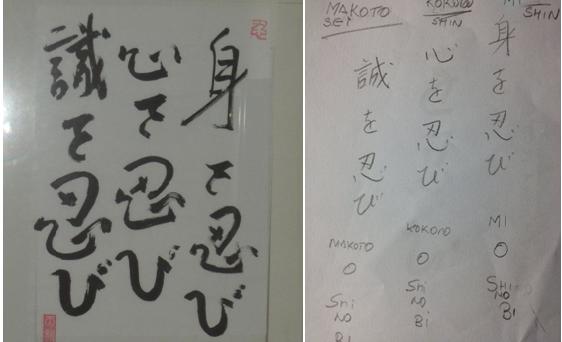 身を忍び
心を忍び
誠を忍び
MAKOTO
SEI
KOKORO
SHIN
MI
SHIN
身を忍び
心を忍び
誠を忍び
MAKOTO
O
Shi
NO
Bi
KOKORO
O
Shi
NO
Bi
MI
O
SHI
NO
Bi